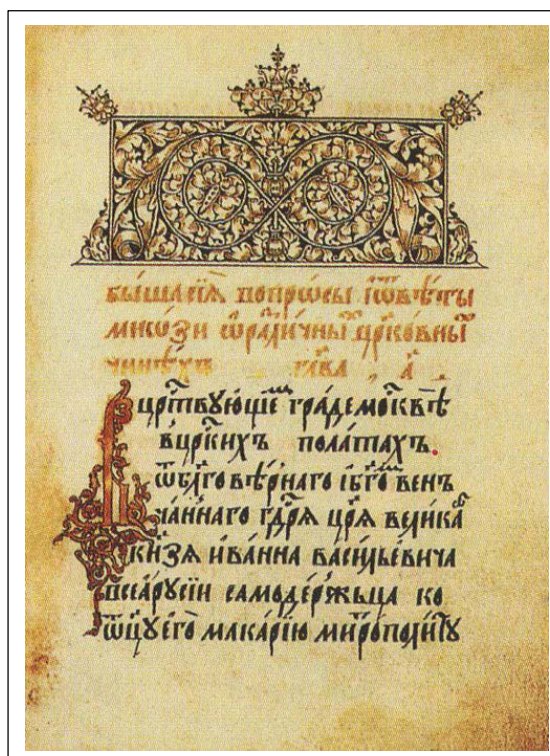 бы́ша сїѧ̀ вопрѡсы иѿвѣ́ты
мнѡ́зи ѡразли́чныⷯ црко́вныⷯ
чинѣхъ глава , а҃ .
В црⷭ҇твꙋющїеⷨ гра́де москвѣ̀
в црⷭ҇кихъ пола́тахъ.
ѿ бл҃говѣ́рнаго и бг҃оⷨ вен
ча́ннаго гдⷭ҇рѧ црѧ̀ вели́каⷢ
кн҃зѧ ива́нна васи́льевича
всеѧ̀ рꙋсїи самоде́ржьца ко
ѿцꙋ̀ его̀ мака́рїю митрополи́тꙋ